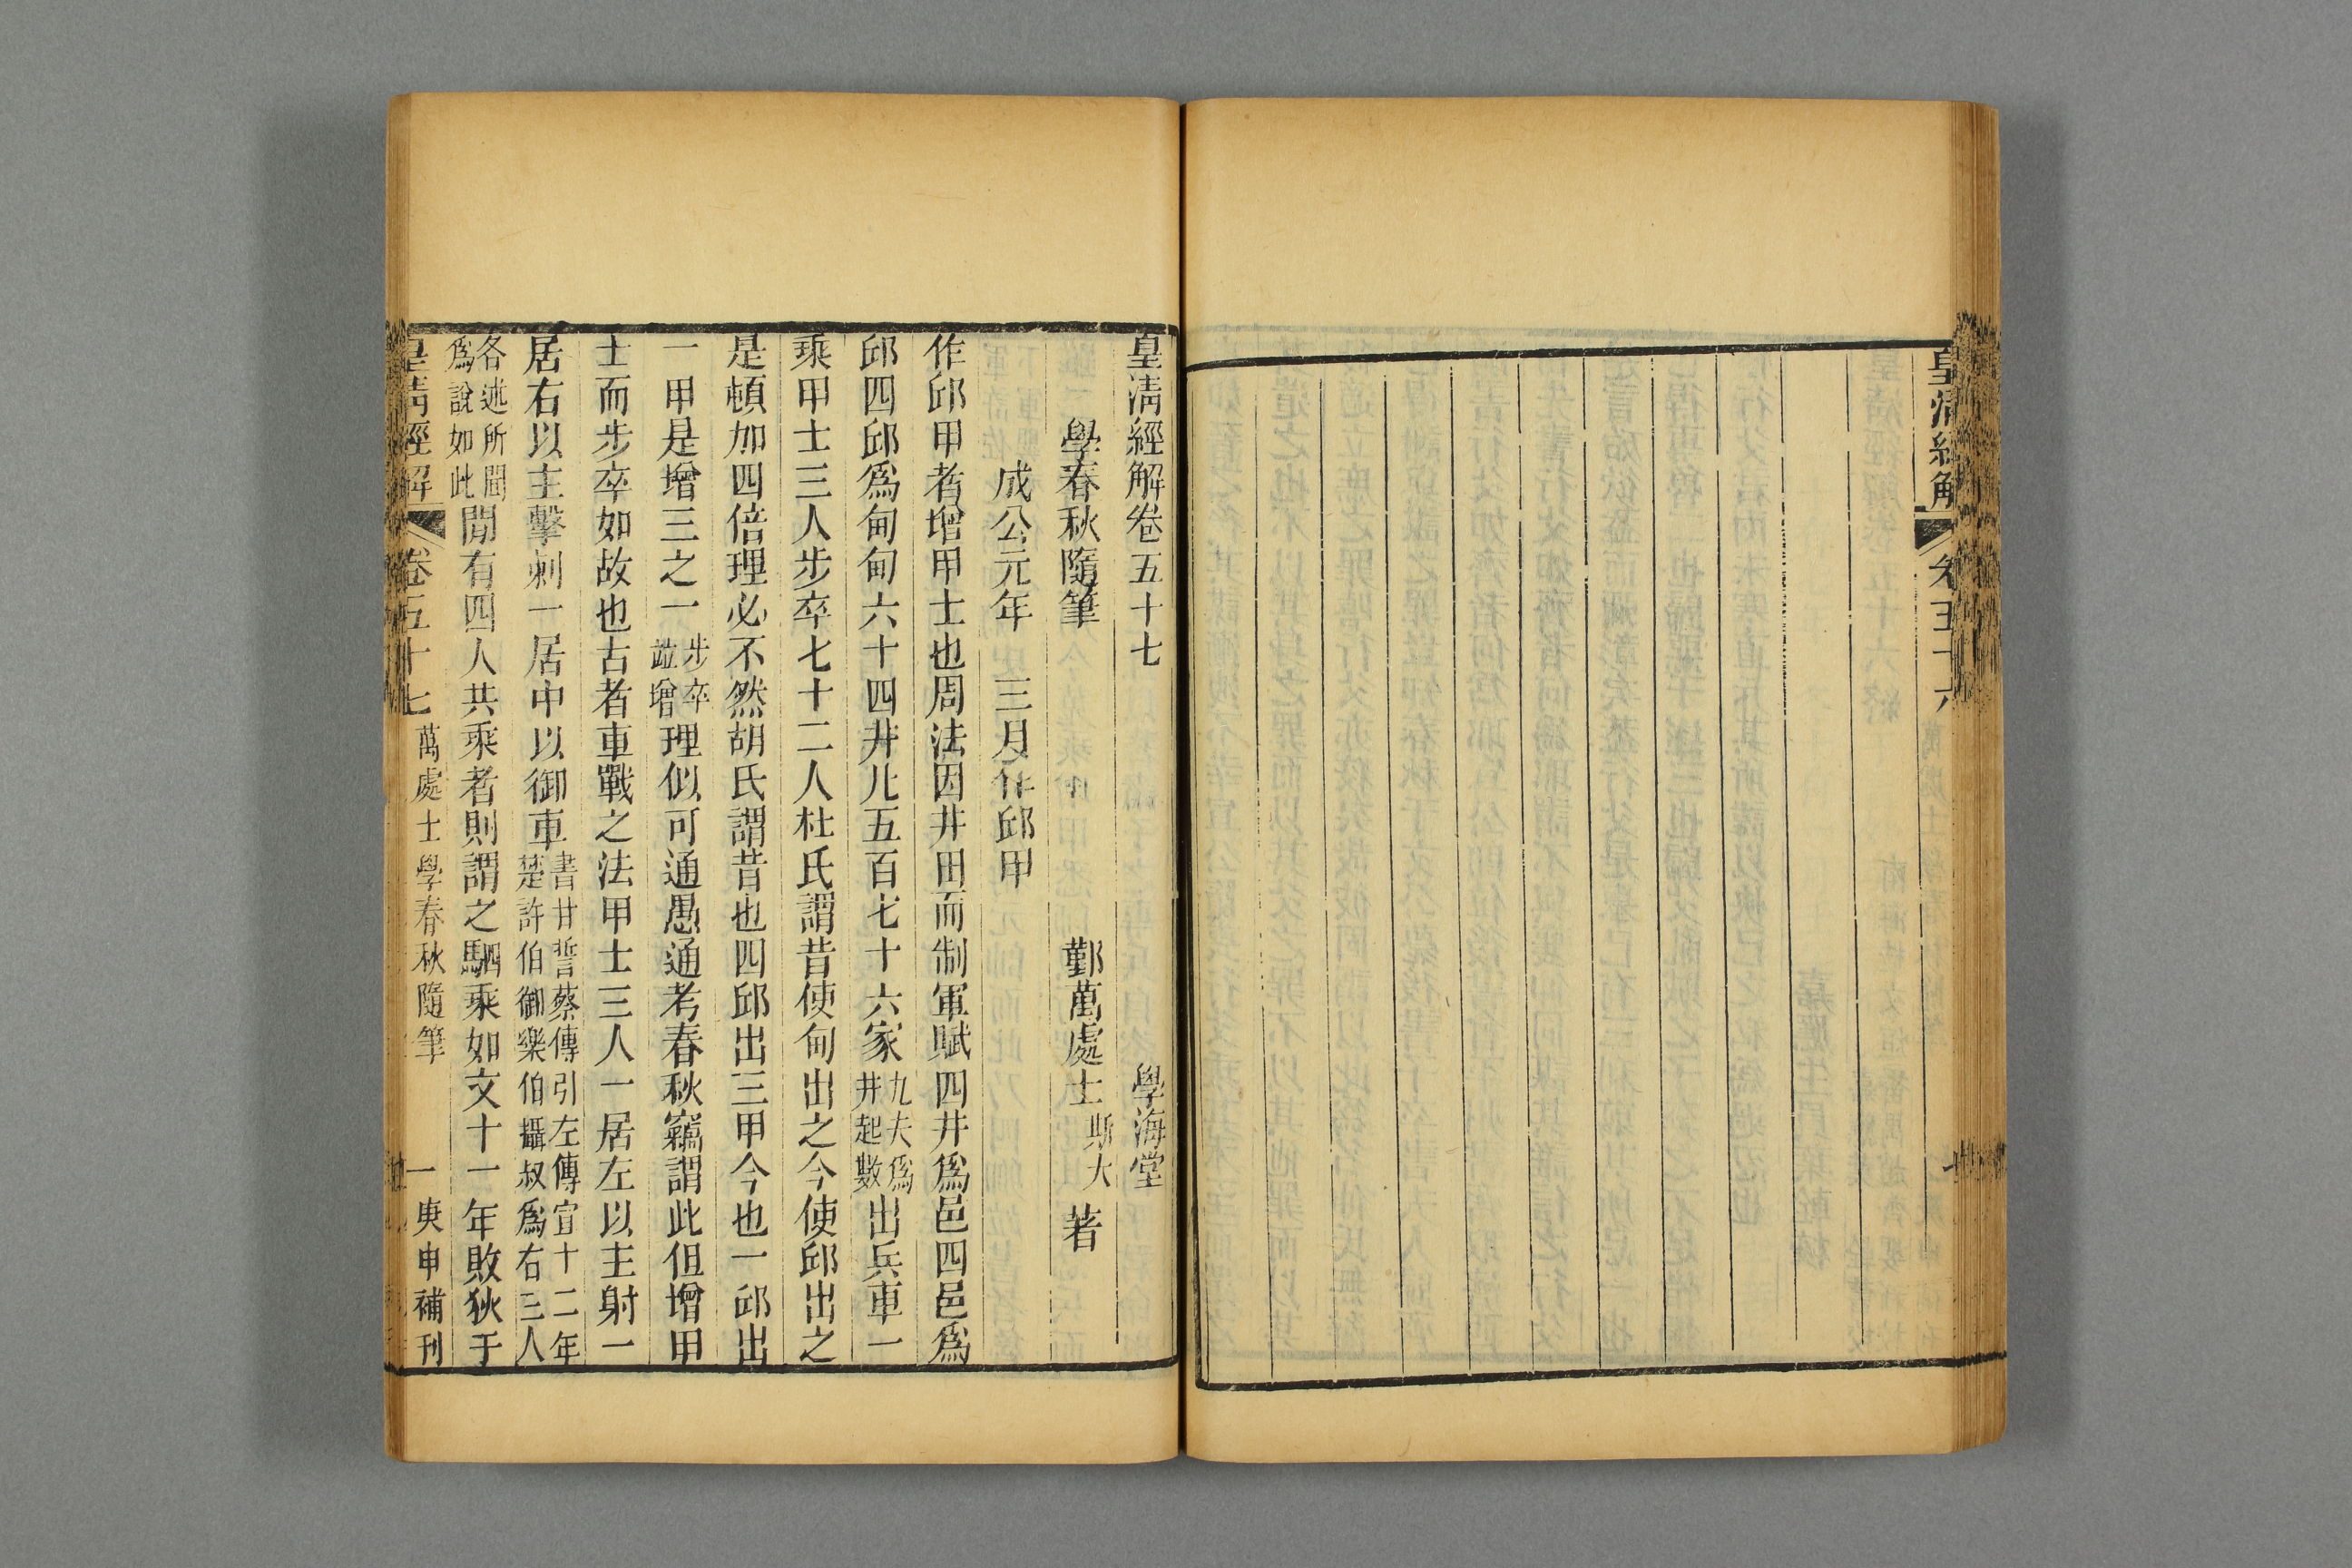 皇清經解
皇清經解卷五十七
學海堂
學春秋隨筆
鄞萬處士斯大著
成公元年 三月作邱甲
作邱甲者增甲士也周法因井田而制軍賦四井爲邑四邑爲
邱四邱爲甸甸六十四井凡五百七十六家九夫爲井起數出兵車一
乘甲士三人步卒七十二人杜氏謂昔使甸出之今使邱出之
是頓加四倍理必不然胡氏謂昔也四邱出三甲今也一邱出
一甲是增三之一步卒竝增理似可通愚通考春秋竊謂此但增甲
士而步卒如故也古者車戰之法甲士三人一居左以主射一
居右以主擊刺一居中以御車書甘誓蔡傳引左傳宣十二年楚許伯御樂伯攝叔爲右三人
各述所聞爲說如此間有四人共乘者則謂之駟乘如文十一年敗狄于
皇清經解 卷五十七 萬處士學春秋隨筆 一 庚申補刊